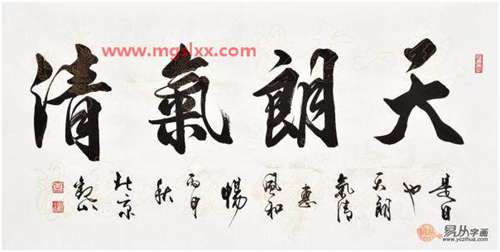 天朗氣清
是日
也
天朗
氣清
惠
風和
暢
丙申
秋
北京
www.mgslxx.com
易从字画
www.yczihua.com